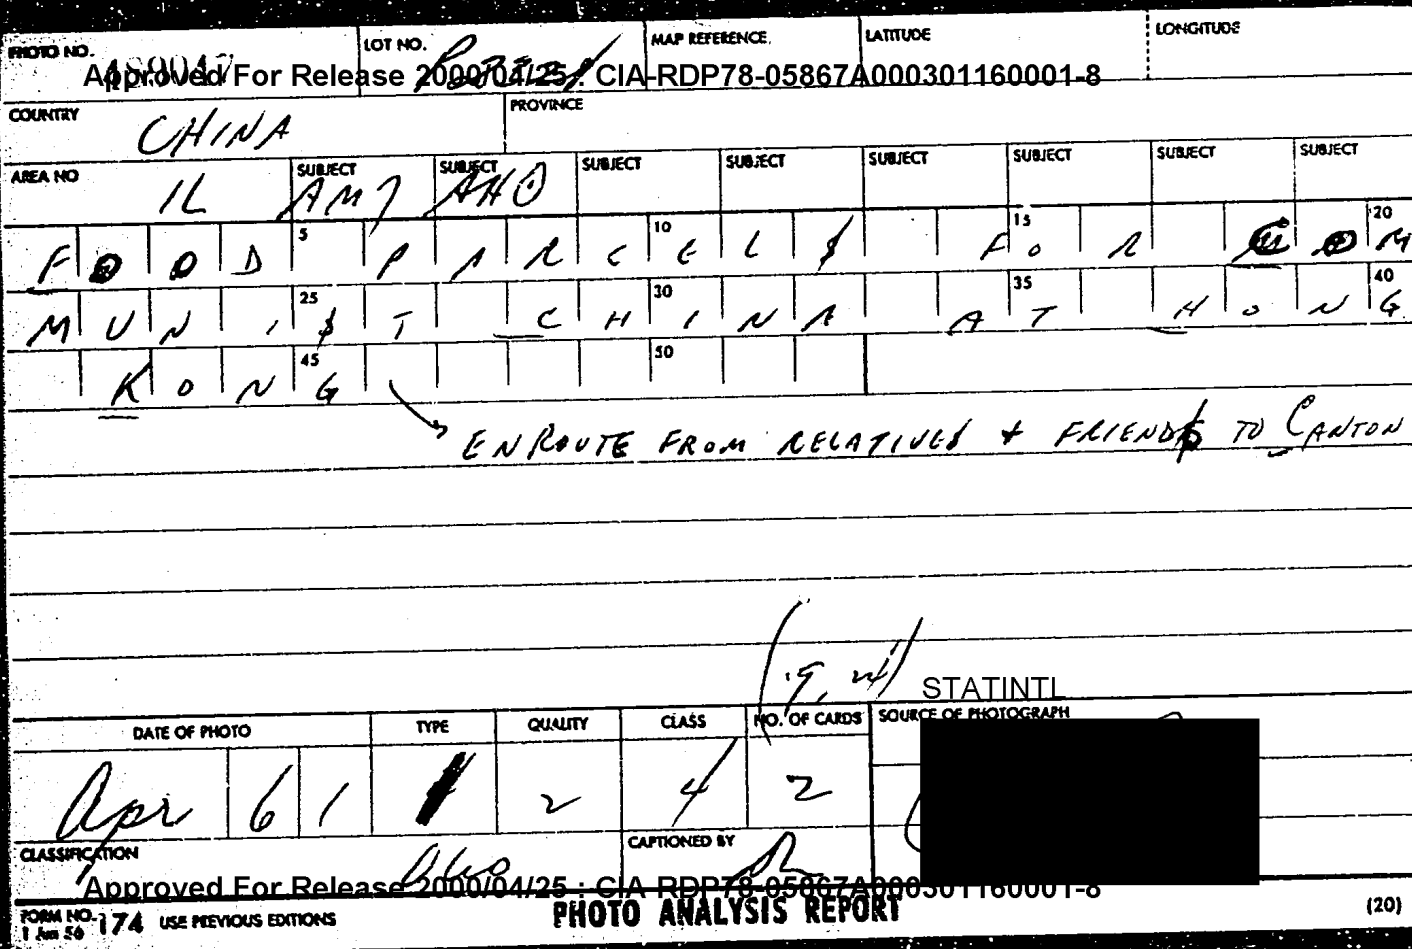 PHOTO NO. LOT NO. MAP REFERENCE LATITUDE LONGITUDE
Approved For Release 2000/04/25 : CIA-RDP78-05867A000301160001-8
COUNTRY CHINA PROVINCE
AREA NO SUBJECT SUBJECT SUBJECT SUBJECT SUBJECT SUBJECT SUBJECT SUBJECT
5 10 15 20
FOOD PARCELS FOR COM
25 30 35 40
MUNIST CHINA AT HONG
45 50
KONG
ENROUTE FROM RELATIVES + FRIENDS TO CANTON
STATINTL
DATE OF PHOTO TYPE QUALITY CLASS NO. OF CARDS SOURCE OF PHOTOGRAPH
Apr 6 1 2 4 2
CLASSIFICATION CAPTIONED BY
Approved For Release 2000/04/25 : CIA-RDP78-05867A000301160001-8
FORM NO. 174 USE PREVIOUS EDITIONS PHOTO ANALYSIS REPORT (20)
1 Jun 56